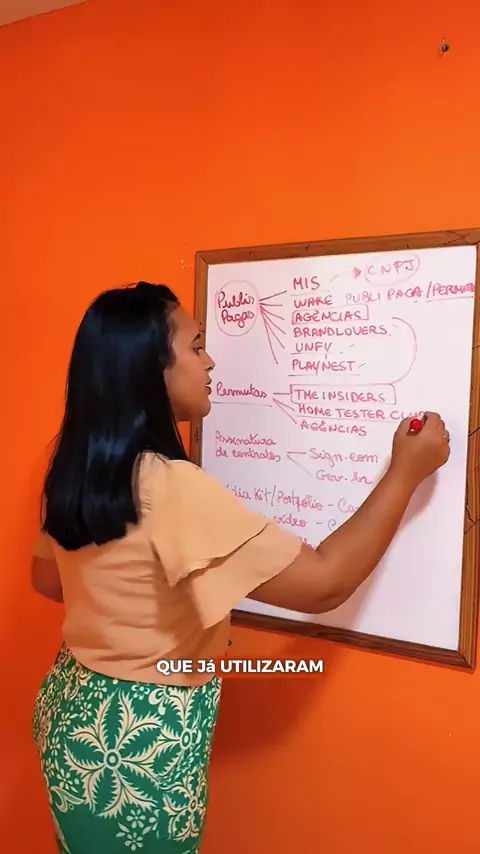 CNPJ
MIS
Publis
Pagas
WAKE PUBLI PAGA/PERMUTA
AGÊNCIAS
BRANDLOVERS
UNFY
PLAYNEST
Permutas
THE INSIDERS
HOME TESTER CLUB
AGÊNCIAS
Assinatura
de contratos
Sign.com
Gov.br
ídia Kit/Portfólio - Ca
vídeo - C
QUE Já UTILIZARAM